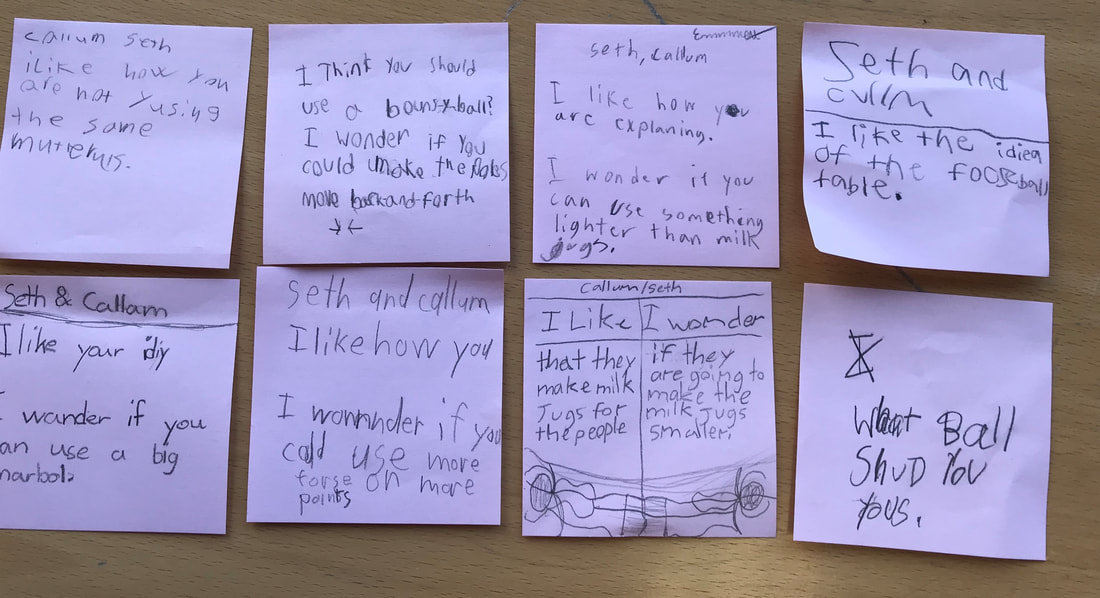 callum seth
i like how you
are not yusing
the same
muterels.
I Think you should
use a bounsy ball?
I wonder if you
could make the Poles
move back and forth
seth, callum
I like how you
are explaning.
I wonder if you
can use something
lighter than milk
jugs.
Seth and
cullm
I like the idiea
of the fooseball
table.
Seth & Callam
I like your idiy
I wander if you
an use a big
marbol
seth and callum
I like how you
I wonnnder if you
cald use more
forse on more
points
Callum/Seth
I Like
that they
make milk
Jugs for
the people
I wonder
if they
are going to
make the
milk jugs
smaller.
I
What Ball
Shud You
yous.